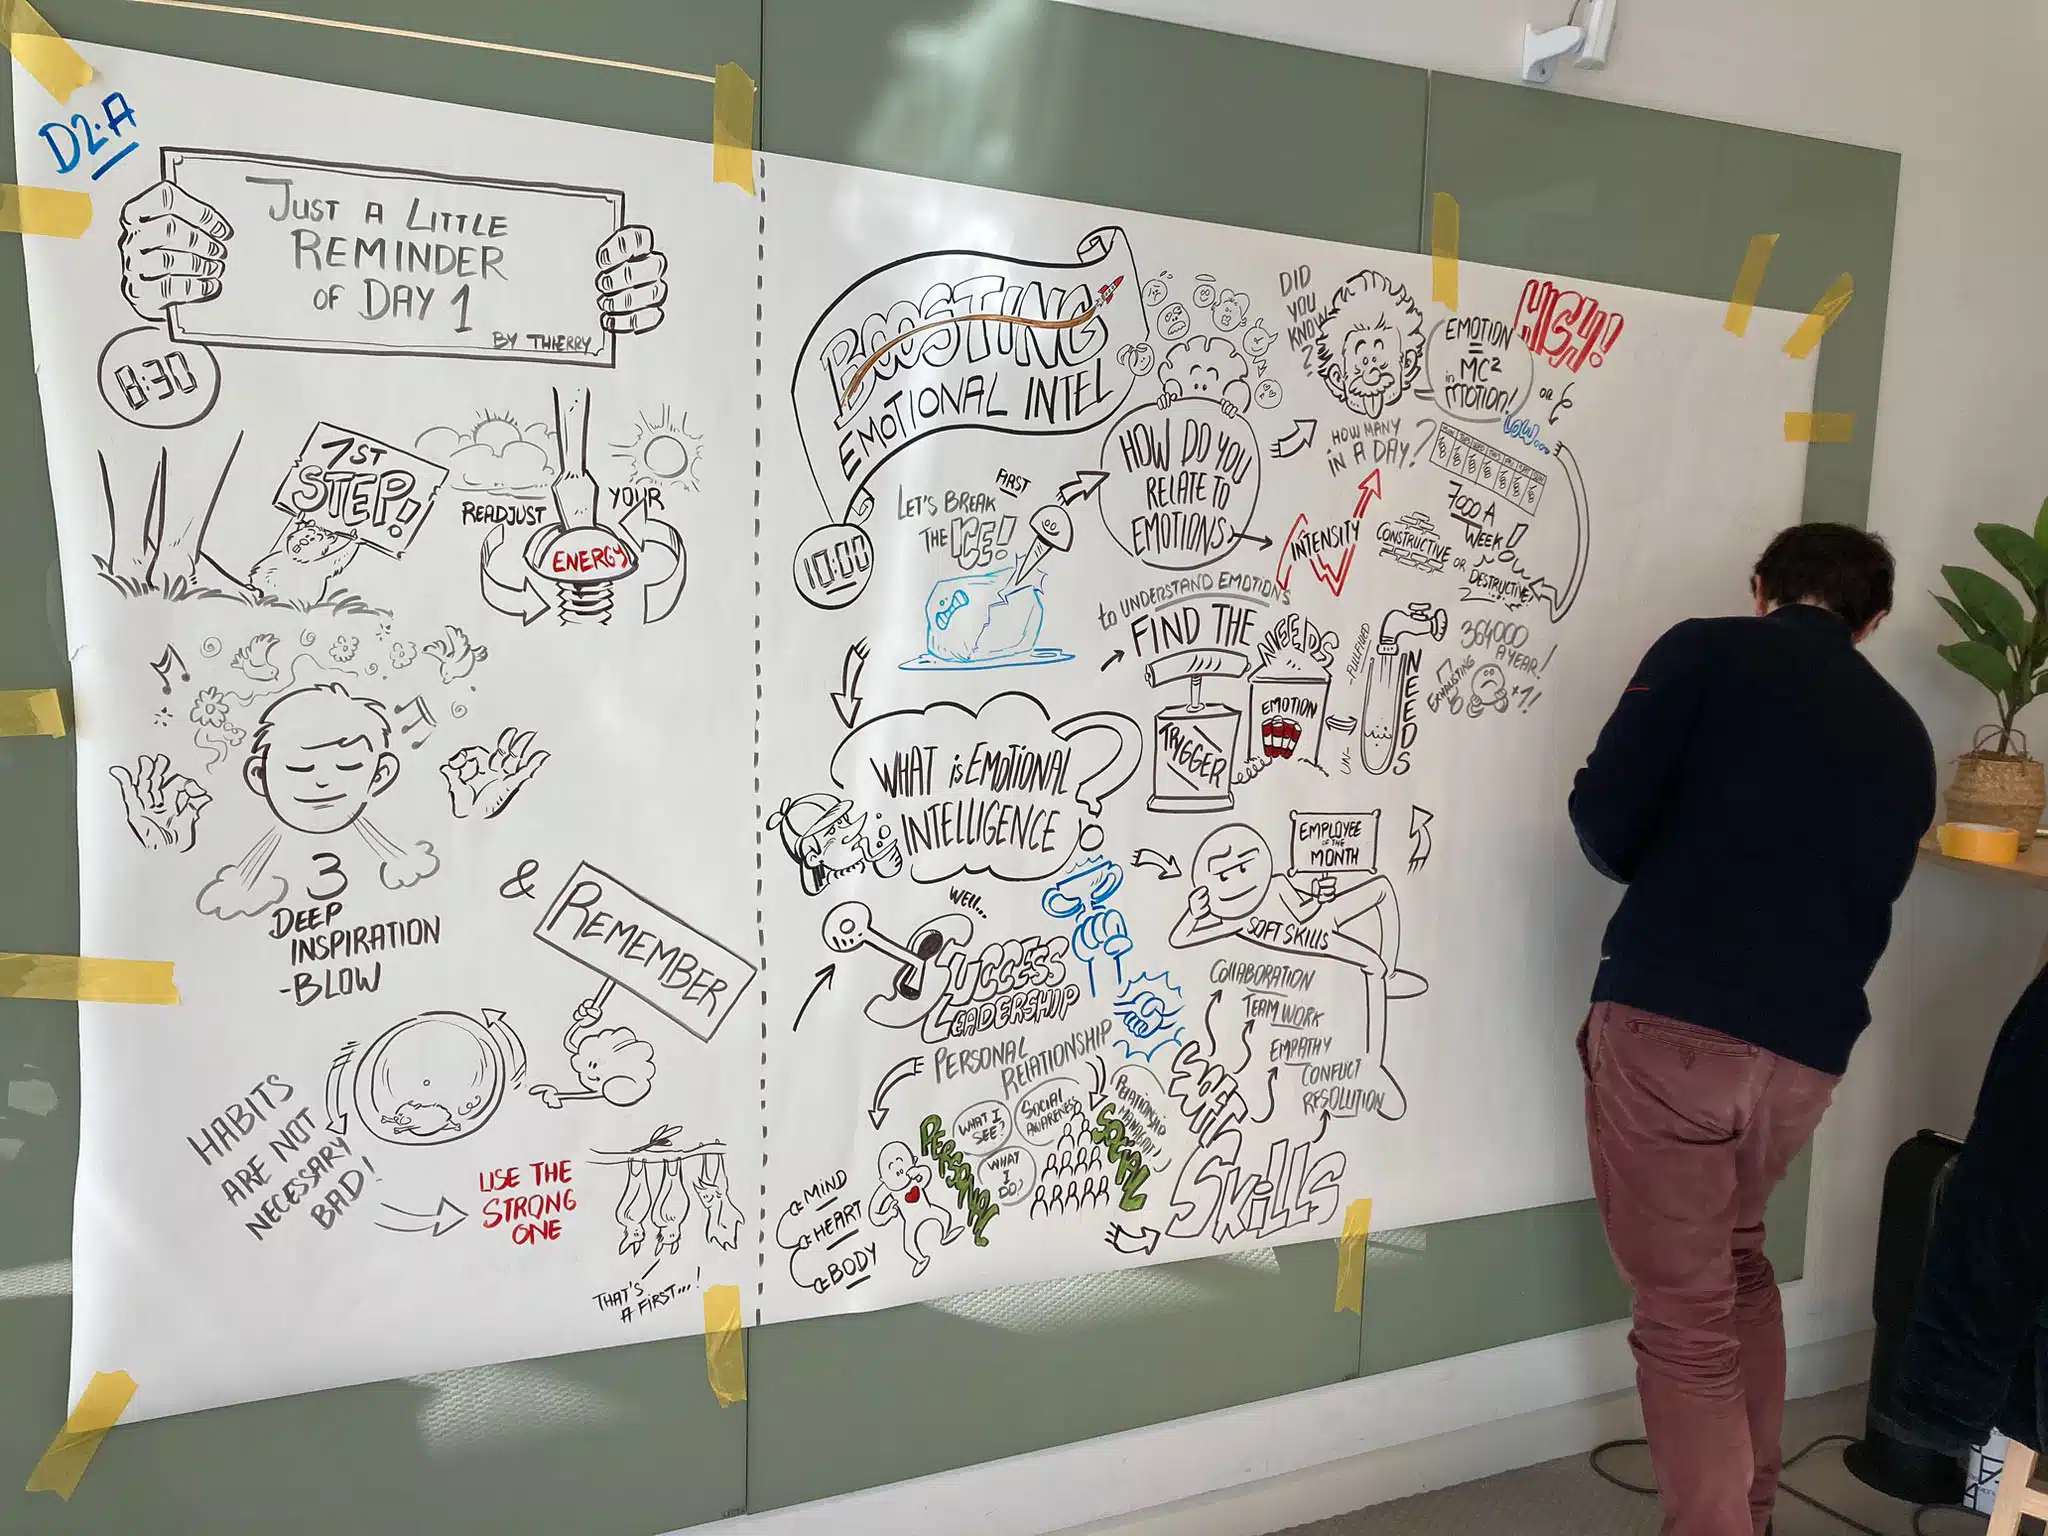 D2:A
JUST A LITTLE
REMINDER
OF DAY 1
BY THIERRY
8:30
1ST
STEP!
READJUST
YOUR
ENERGY
3
DEEP
INSPIRATION
-BLOW
&
REMEMBER
HABITS
ARE NOT
NECESSARY
BAD!
USE THE
STRONG
ONE
THAT'S
A FIRST...!
BOOSTING
EMOTIONAL INTEL
10:00
FIRST
LET'S BREAK
THE ICE!
HOW DO YOU
RELATE TO
EMOTIONS
DID
YOU
KNOW
?
EMOTION
=
MC²
in MOTION!
HIGH!
OR
LOW...
HOW MANY
IN A DAY?
7000 A
WEEK!
INTENSITY
CONSTRUCTIVE
OR
DESTRUCTIVE!
364000
A YEAR!
EXHAUSTING
+1!
to UNDERSTAND EMOTIONS
FIND THE
TRIGGER
NEEDS
EMOTION
UN-
-FULFILLED
NEEDS
WHAT is EMOTIONAL
INTELLIGENCE
?
WELL...
SUCCESS
LEADERSHIP
PERSONAL
RELATIONSHIP
EMPLOYEE
OF THE
MONTH
SOFT SKILLS
COLLABORATION
TEAM WORK
EMPATHY
CONFLICT
RESOLUTION
SOFT
SKILLS
PERSONAL
WHAT I
SEE?
WHAT
I
DO?
SOCIAL
AWARENESS
SOCIAL
RELATIONSHIP
MANAGMT!
MIND
HEART
BODY